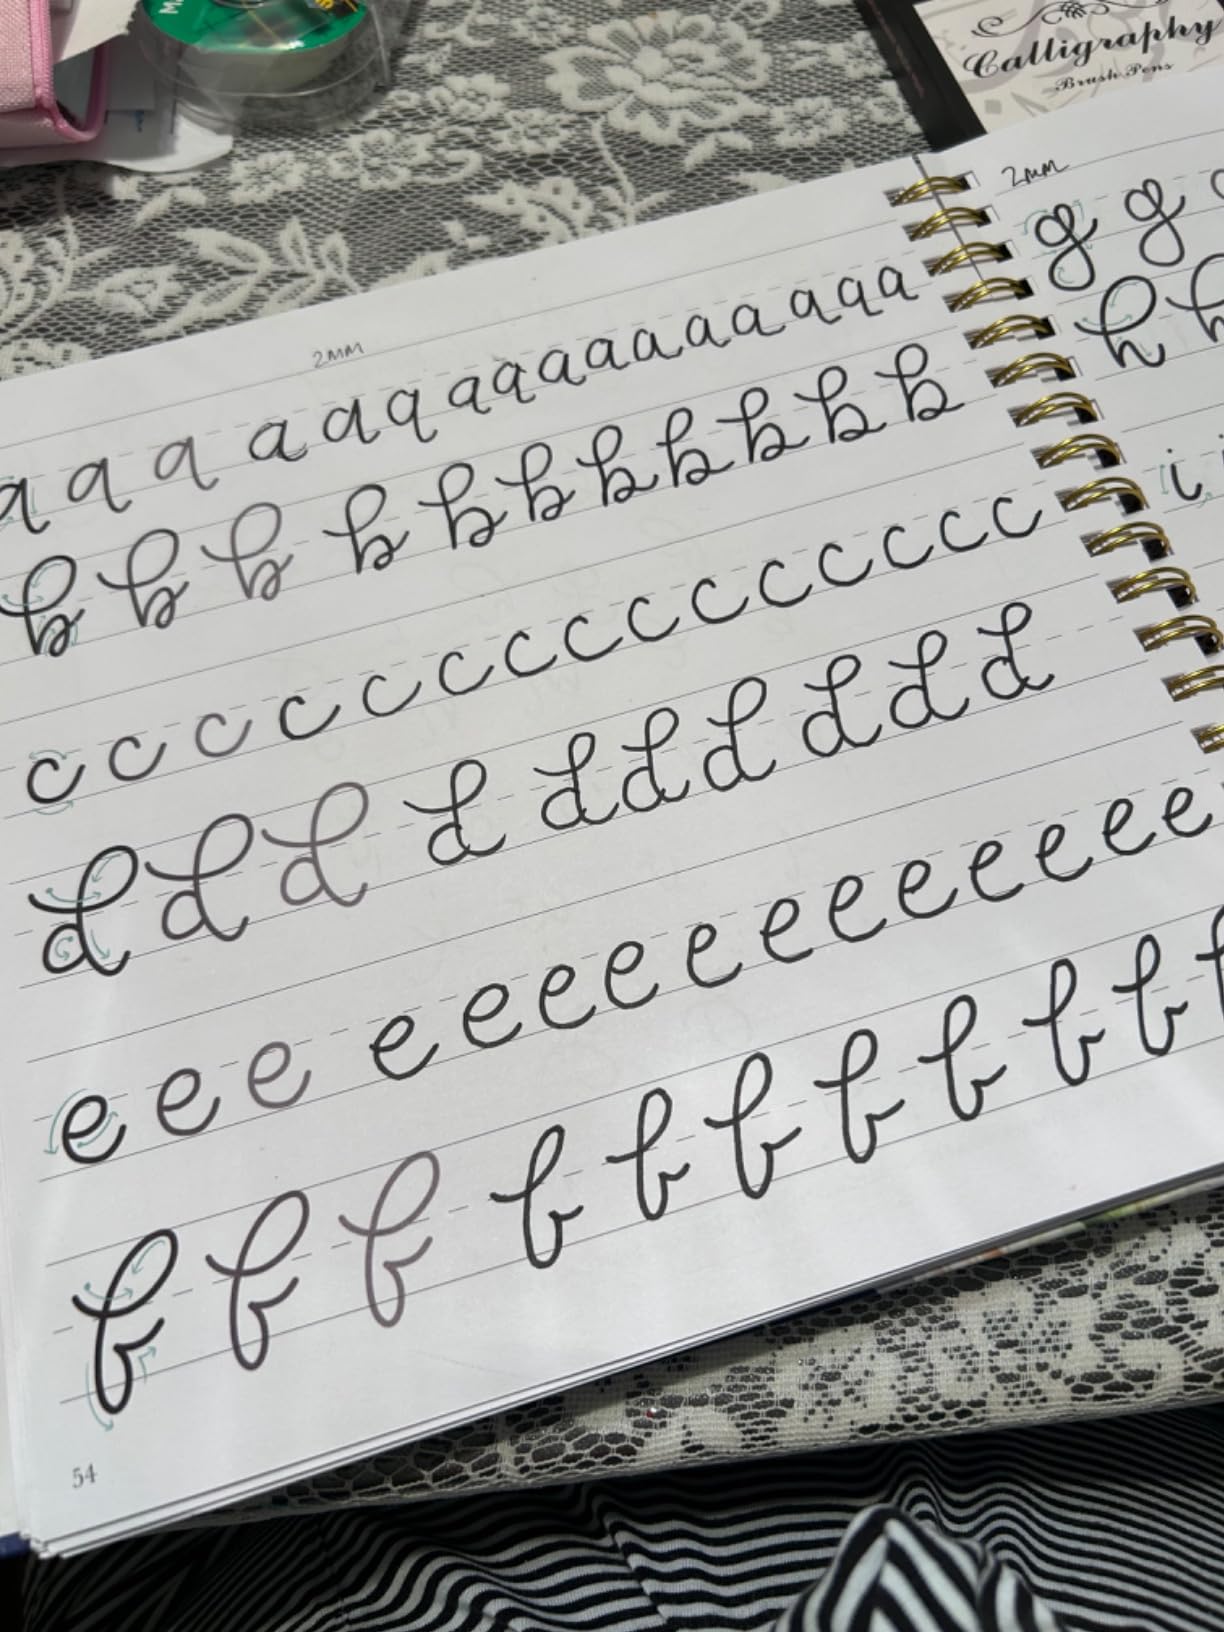 Calligraphy
Brush Pens
2mm
a a a a a a a a a a a a a a a a
b b b b b b b b b b b
c c c c c c c c c c c c c c c
d d d d d d d d d d
e e e e e e e e e e e e e e e
f f f f f f f f f f
54
2mm
g g
h h
i